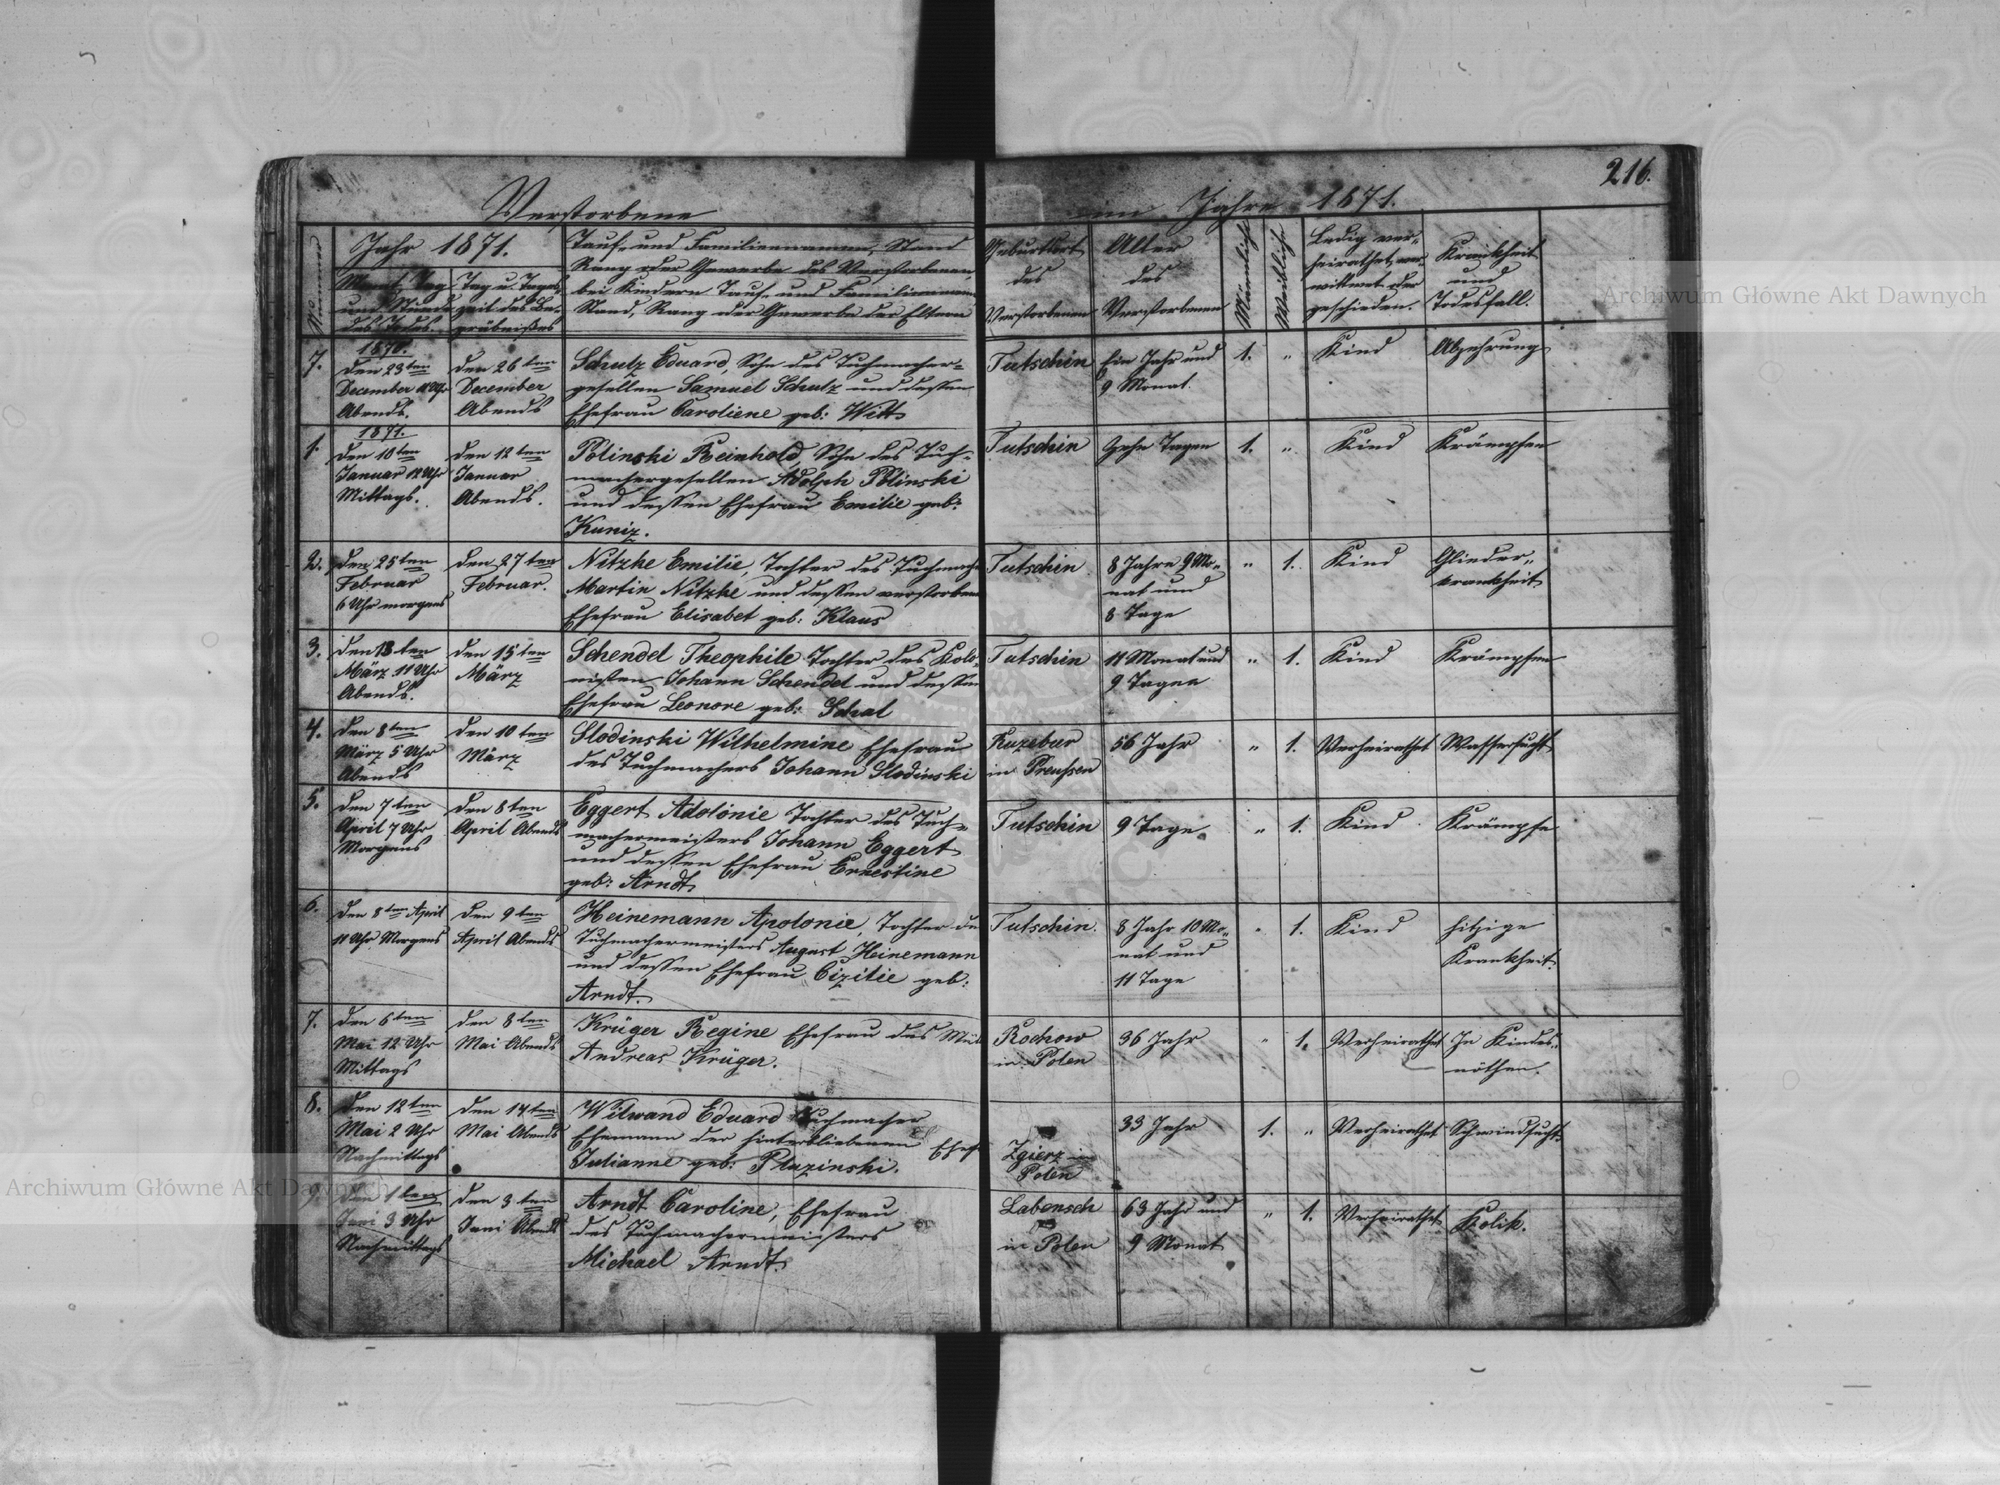 216.
Verstorbene im Jahre 1871.
Jahr 1871.
Monat, Tag und Stunde des Todes.
Tag u. Tageszeit des Begräbnißes
Tauf- und Familiennamen, Stand
Rang oder Gewerbe des Verstorbenen
bei Kindern Tauf- und Familiennamen
Stand, Rang oder Gewerbe der Eltern
Geburtsort
des
Verstorbenen
Alter
des
Verstorbenen
Männliche
Weibliche
Ledig ver-
heirathet, ver-
wittwet oder
geschieden.
Krankheit
und
Todesfall.
7.
1870.
den 23ten
December 11 Uhr
Abends.
den 26ten
December
Abends
Schulz Eduard, Sohn des Tuchmacher-
gesellen Samuel Schulz und dessen
Ehefrau Caroliene geb: Witt
Tutschin
Ein Jahr und
9 Monat.
1.
"
Kind
Abzehrung
1.
1871.
den 10ten
Januar 12 Uhr
Mittags.
den 12ten
Januar
Abends.
Polinski Reinhold, Sohn des Tuch-
machergesellen Adolph Polinski
und dessen Ehefrau Emilie geb:
Kuniz.
Tutschin
Zehn Tagen
1.
"
Kind
Krämpfen
2.
den 25ten
Februar
6 Uhr morgens
den 27ten
Februar.
Nitzke Emilie, Tochter des Tuchmach
Martin Nitzke und dessen verstorbene
Ehefrau Elisabet geb: Klaus
Tutschin
8 Jahre 9 Mo-
nat und
8 Tage
"
1.
Kind
Glieder-
krankheit
3.
den 13ten
März 11 Uhr
Abends.
den 15ten
März
Schendel Theophile Tochter des Kolo-
nisten Johann Schendel und dessen
Ehefrau Leonore geb: Schal
Tutschin
11 Monat und
9 Tagen
"
1.
Kind
Krämpfen
4.
den 8ten
März 5 Uhr
Abends
den 10ten
März
Slodinski Wilhelmine Ehefrau
des Tuchmachers Johann Slodinski
in Preußen
56 Jahr
"
1.
Verheirathet
Wassersucht
5.
den 7ten
April 7 Uhr
Morgens
den 8ten
April Abends
Eggert Adolönie Tochter des Tuch-
machermeisters Johann Eggert
und dessen Ehefrau Ernestine
geb: Arndt
Tutschin
9 Tage
"
1.
Kind
Krämpfe
6.
den 8ten April
11 Uhr Morgens
den 9ten
April Abends
Heinemann Apolonie, Tochter de
Tuchmachermeisters August Heinemann
und dessen Ehefrau Cizilie geb:
Arndt.
Tutschin.
8 Jahr 10 Mo-
nat und
11 Tage
"
1.
Kind
hitzige
Krankheit.
7.
den 6ten
Mai 12 Uhr
Mittags
den 8ten
Mai Abends
Krüger Regine Ehefrau des Mül
Andreas Krüger.
Rochow
in Polen
36 Jahr
"
1.
Verheirathet
In Kindes-
nöthen.
8.
den 12ten
Mai 2 Uhr
Nachmittags
den 14ten
Mai Abends
Wilwand Eduard Tuchmacher
Ehemann der hinterbliebenen Ehef
Julianne geb: Pluzinski.
Zgierz in
Polen
33 Jahr
1.
"
Verheirathet
Schwindsucht.
9.
den 1ten
Juni 3 Uhr
Nachmittags
den 3ten
Juni Abends
Arndt Caroline, Ehefrau
des Tuchmachermeisters
Michael Arndt.
Labensch
in Polen
63 Jahr und
9 Monat
"
1.
Verheirathet
Kolik.
Archiwum Główne Akt Dawnych
Archiwum Główne Akt Dawnych